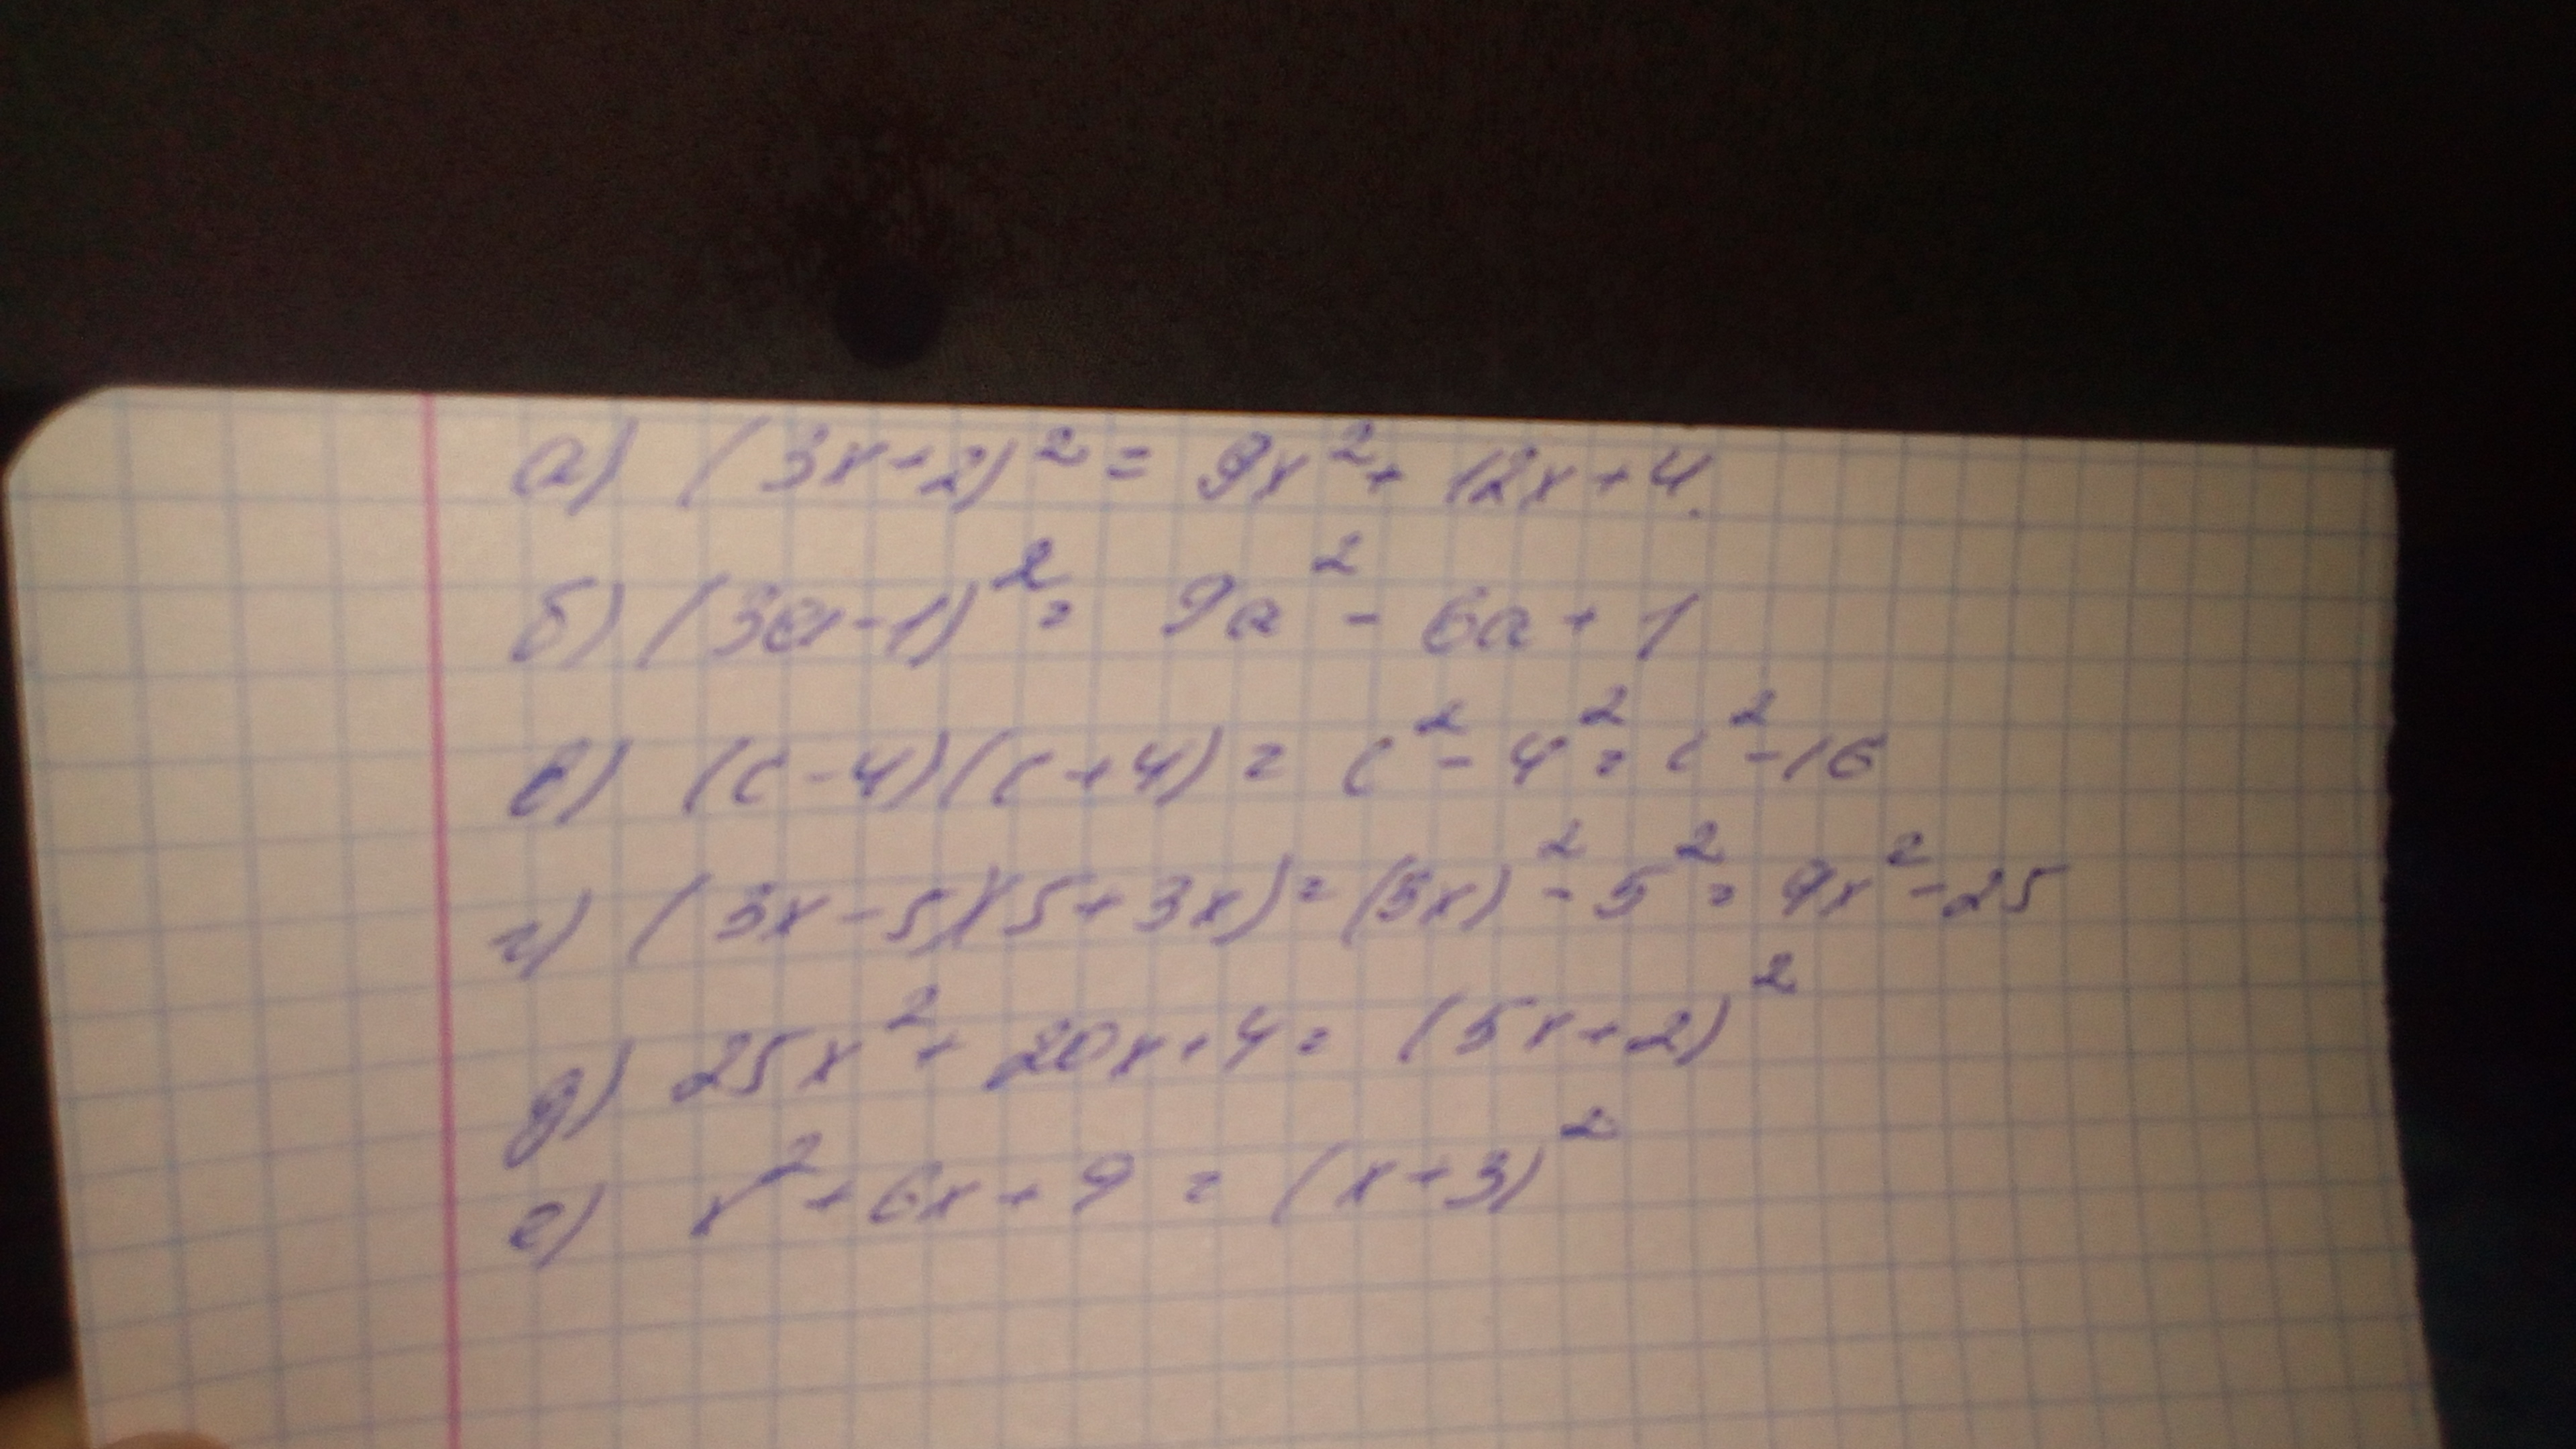 а) (3x+2)² = 9x² + 12x + 4.
б) (3a-1)² = 9a² - 6a + 1
в) (c-4)(c+4) = c² - 4² = c² - 16
г) (3x-5)(5+3x) = (3x)² - 5² = 9x² - 25
д) 25x² + 20x + 4 = (5x+2)²
е) x² + 6x + 9 = (x+3)²